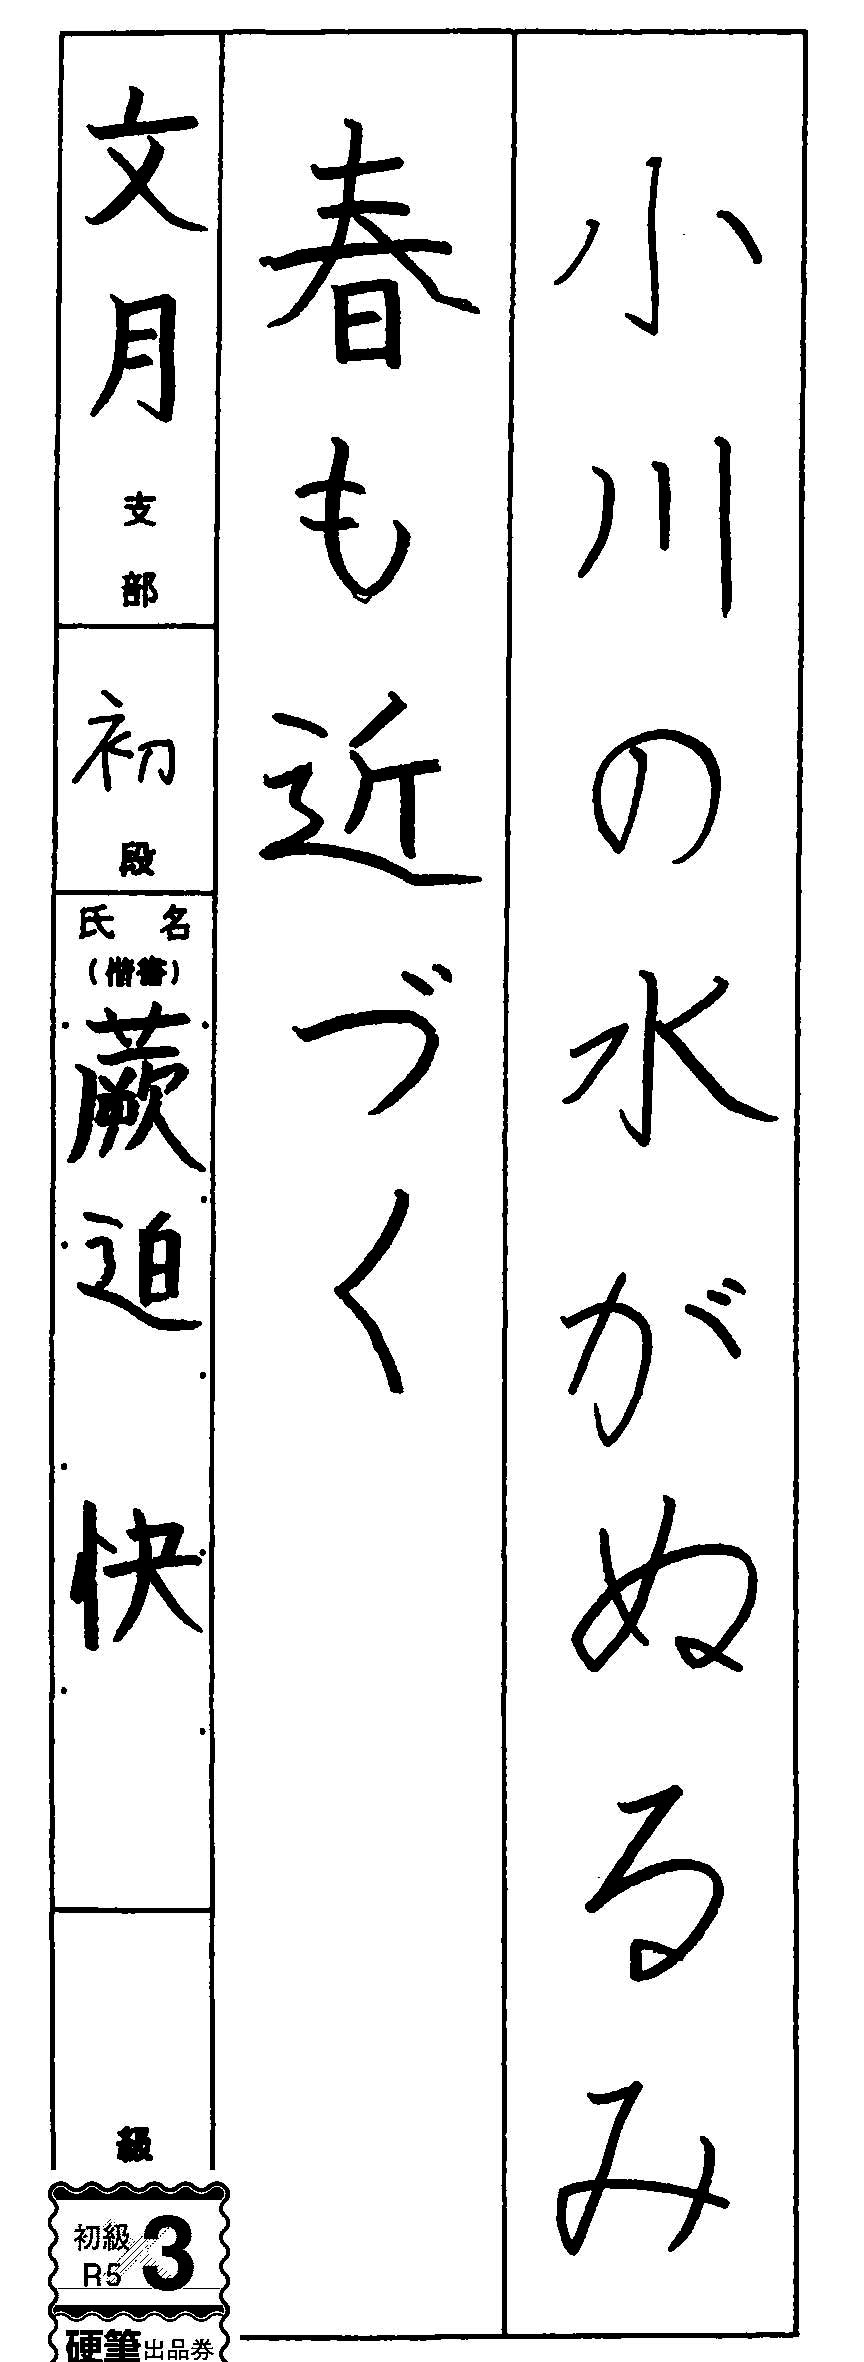 小川の水がぬるみ
春も近づく
文月支部
初段
氏名
(楷書)
蕨迫 快
級
初級
R5
3
硬筆出品券